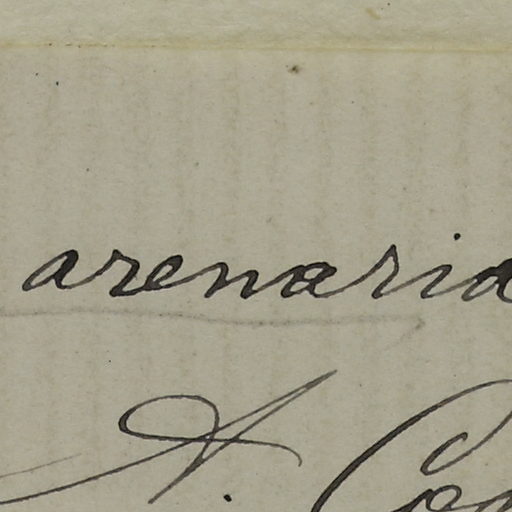 arenaria
A.